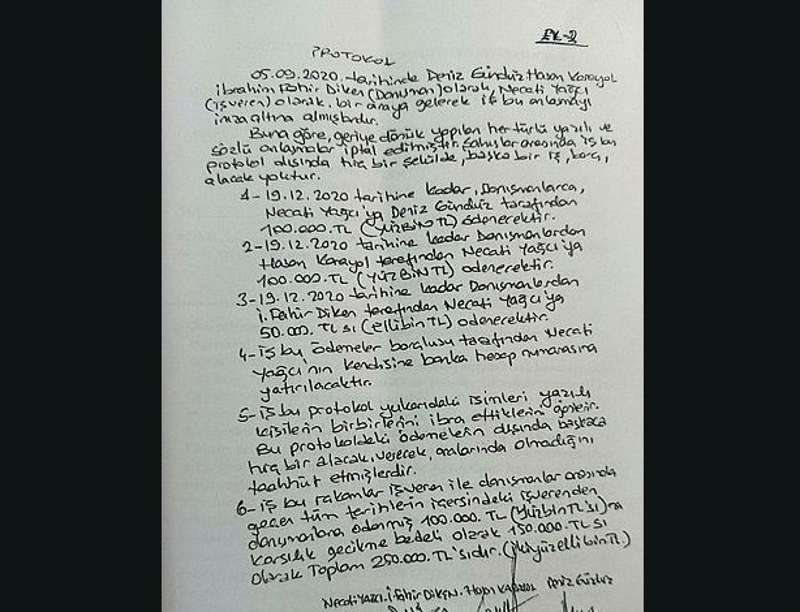 EK-2
PROTOKOL
05.09.2020 tarihinde Deniz Gündüz Hasan Karayol
İbrahim Fahir Diken (Danışman) olarak, Necati Yağcı
(işveren) olarak, bir araya gelerek iş bu anlaşmayı
imza altına almışlardır.
Buna göre, geriye dönük yapılan her türlü yazılı ve
sözlü anlaşmalar iptal edilmiştir. Şahıslar arasında iş bu
protokol dışında hiç bir şekilde, başka bir iş, borç,
alacak yoktur.
1-19.12.2020 tarihine kadar, Danışmanlarca,
Necati Yağcı'ya Deniz Gündüz tarafından
100.000.TL (YÜZBİN TL) ödenecektir.
2-19.12.2020 tarihine kadar Danışmanlardan
Hasan Karayol tarafından Necati Yağcı'ya
100.000.TL (YÜZBİN TL) ödenecektir.
3-19.12.2020 tarihine kadar Danışmanlardan
İ. Fahir Diken tarafından Necati Yağcı'ya
50.000. TL sı (ellibin TL) ödenecektir.
4-iş bu ödemeler borçlusu tarafından Necati
Yağcı'nın kendisine banka hesap numarasına
yatırılacaktır.
5-iş bu protokol yukarıdaki isimleri yazılı
kişilerin birbirlerini ibra ettiklerin gösterir.
Bu protokoldeki ödemelerin dışında başkaca
hiç bir alacak, verecek, aralarında olmadığını
taahhüt etmişlerdir.
6-iş bu rakamlar işveren ile danışmanlar arasında
geçen tüm tarihlerin içersindeki işverenden
danışmanlara ödenmiş 100.000. TL (YüzbinTL'sı)na
karşılık gecikme bedeli olarak 150.000.TL sı
olarak Toplam 250.000.TL'sıdır. (ikiyüzellibinTL.)
Necati YAĞCI. İ.Fahir DİKEN. Hasan KARAYOL Deniz Gündüz